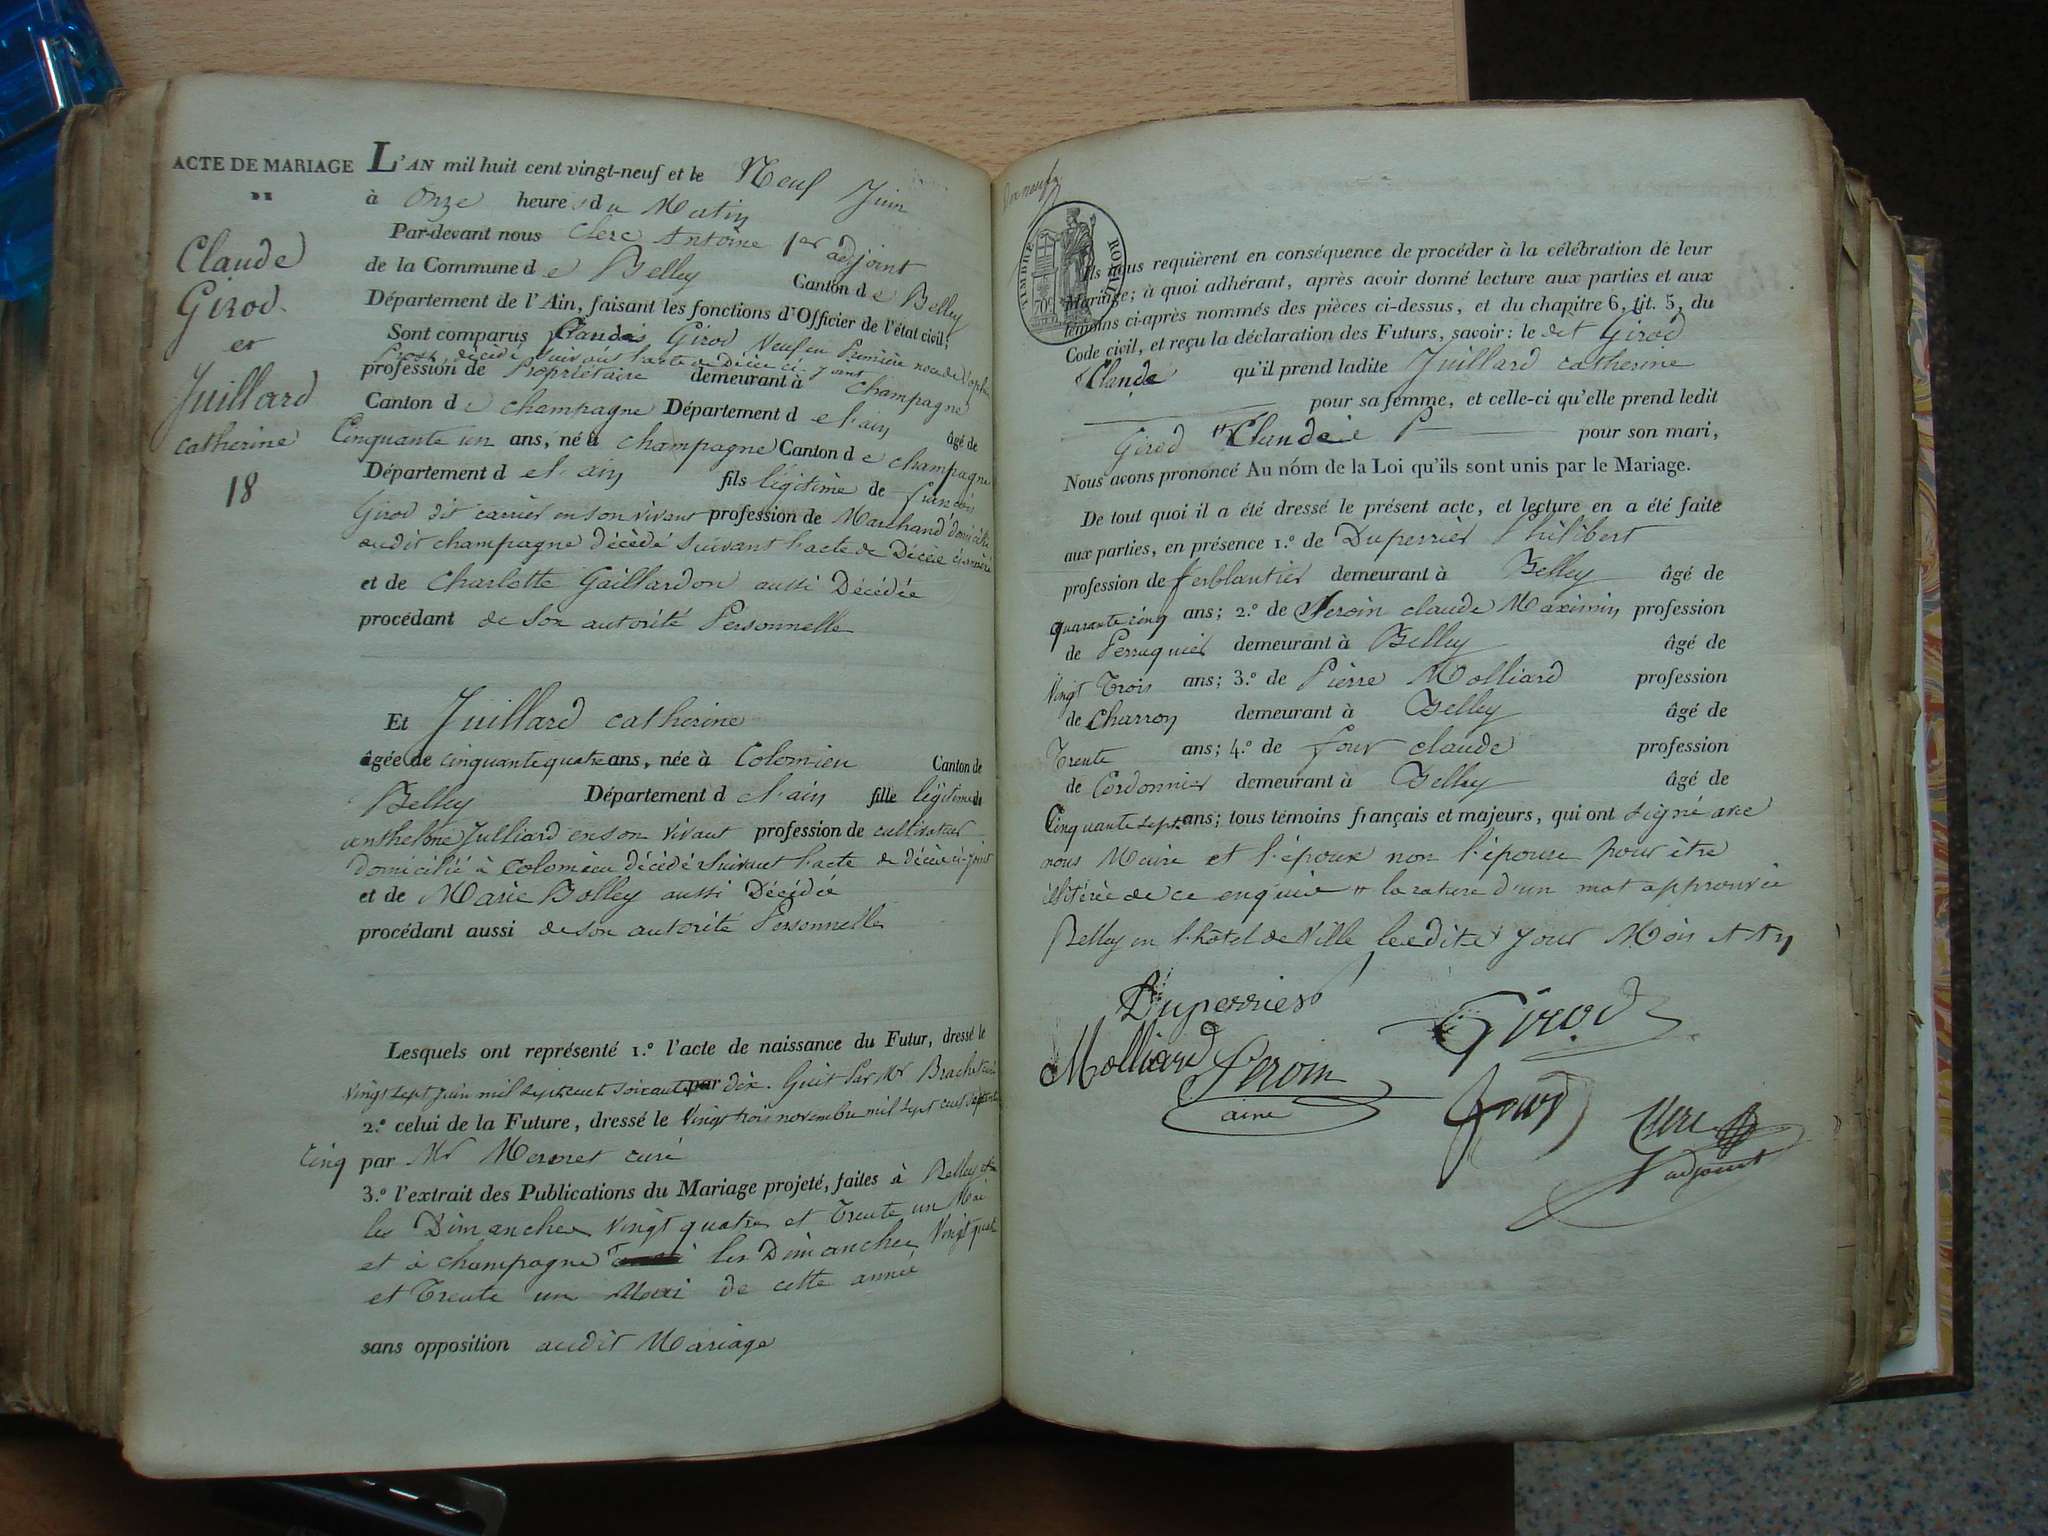 ACTE DE MARIAGE
DE
Claude
Girod
et
Juillard
catherine
18
L'AN mil huit cent vingt-neuf et le Neuf Juin
à Onze heures du Matin
Par-devant nous Clerc Antoine 1er adjoint
de la Commune de Belley Canton de Belley
Département de l'Ain, faisant les fonctions d'Officier de l'état civil;
Sont comparus Claude Girod Veuf en Première noce de
décédé suivant l'acte de Décès ci-joint
profession de Propriétaire demeurant à Champagne
Canton de champagne Département de l'ain âgé de
Cinquante un ans, né à champagne Canton de champagne
Département de l'ain fils légitime de françois
Girod dit carrier en son vivant profession de Marchand domicilié
audit champagne décédé suivant l'acte de Décès
et de Charlotte Gaillardon aussi Décédée
procédant de Son autorité Personnelle
Et Juillard catherine
âgée de cinquante quatre ans, née à Colomieu Canton de
Belley Département de l'ain fille légitime de
anthelme Julliard en son vivant profession de cultivateur
domicilié à Colomieu décédé suivant l'acte de décès ci-joint
et de Marie Bolley aussi Décédée
procédant aussi de son autorité Personnelle
Lesquels ont représenté 1.º l'acte de naissance du Futur, dressé le
vingt sept juin mil sept cent soixante dix. huit par Mr Brachet curé
2.º celui de la Future, dressé le Vingt trois novembre mil sept cent septante
cinq par Mr Mermet curé
3.º l'extrait des Publications du Mariage projeté, faites à Belley
les Dimanches vingt quatre et Trente un Mai
et à champagne les Dimanches Vingt quatre
et Trente un Mai de cette année
sans opposition audit Mariage
TIMBRE ROYAL
70c
Ils nous requièrent en conséquence de procéder à la célébration de leur
Mariage; à quoi adhérant, après avoir donné lecture aux parties et aux
témoins ci-après nommés des pièces ci-dessus, et du chapitre 6, tit. 5, du
Code civil, et reçu la déclaration des Futurs, savoir: le dit Girod
Claude qu'il prend ladite Juillard catherine
pour sa femme, et celle-ci qu'elle prend ledit
Girod Claude pour son mari,
Nous avons prononcé Au nom de la Loi qu'ils sont unis par le Mariage.
De tout quoi il a été dressé le présent acte, et lecture en a été faite
aux parties, en présence 1.º de Duperrier Philibert
profession de ferblantier demeurant à Belley âgé de
quarante cinq ans; 2.º de Peroin claude Maximin profession
de Perruquier demeurant à Belley âgé de
Vingt Trois ans; 3.º de Pierre Molliard profession
de Charron demeurant à Belley âgé de
Trente ans; 4.º de four claude profession
de Cordonnier demeurant à Belley âgé de
Cinquante sept ans; tous témoins français et majeurs, qui ont signé avec
nous Maire et l'époux non l'épouse pour être
illitérée de ce enquise la rature d'un mot approuvée
Belley en l'hôtel de Ville lesdits Jour Mois et An
Duperrier
Girod
Molliard
Peroin
aine
four
Clerc
adjoint